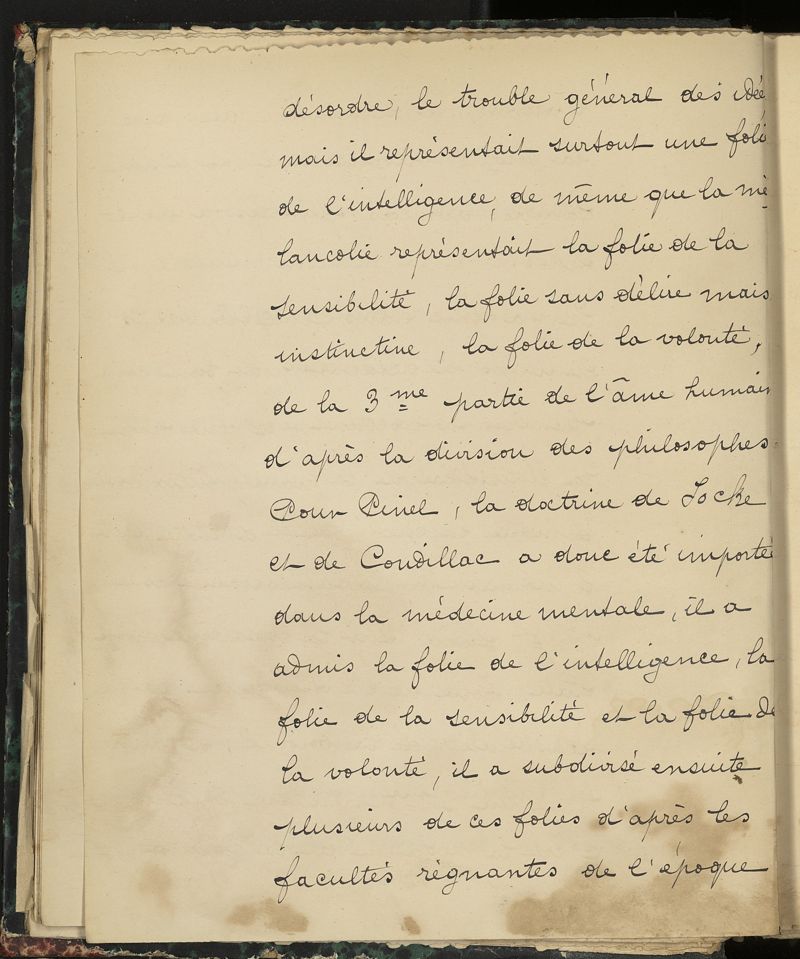 désordre, le trouble général des idée
mais il représentait surtout une foli
de l'intelligence, de même que la mé
lancolie représentait la folie de la
sensibilité, la folie sans délire mais
instinctive, la folie de la volonté,
de la 3me partie de l'âme humain
d'après la division des philosophes.
Pour Pinel, la doctrine de Locke
et de Condillac a donc été importée
dans la médecine mentale, il a
admis la folie de l'intelligence, la
folie de la sensibilité et la folie de
la volonté, il a subdivisé ensuite
plusieurs de ces folies d'après les
facultés régnantes de l'époque